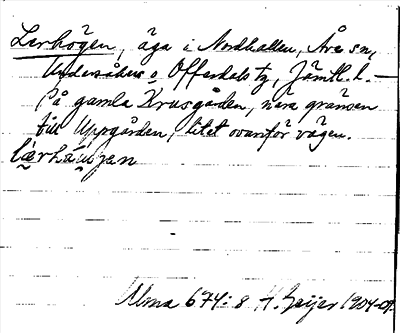 Lerhögen, äga i Nordhallen, Åre sn,
Undersåkers o Offerdals tg, Jämtl. l. —
På gamla Krusgården, nära gränsen
till Uppgården, litet ovanför vägen.
lärháugen
Ulma 674:8 H. Geijer 1904-09.